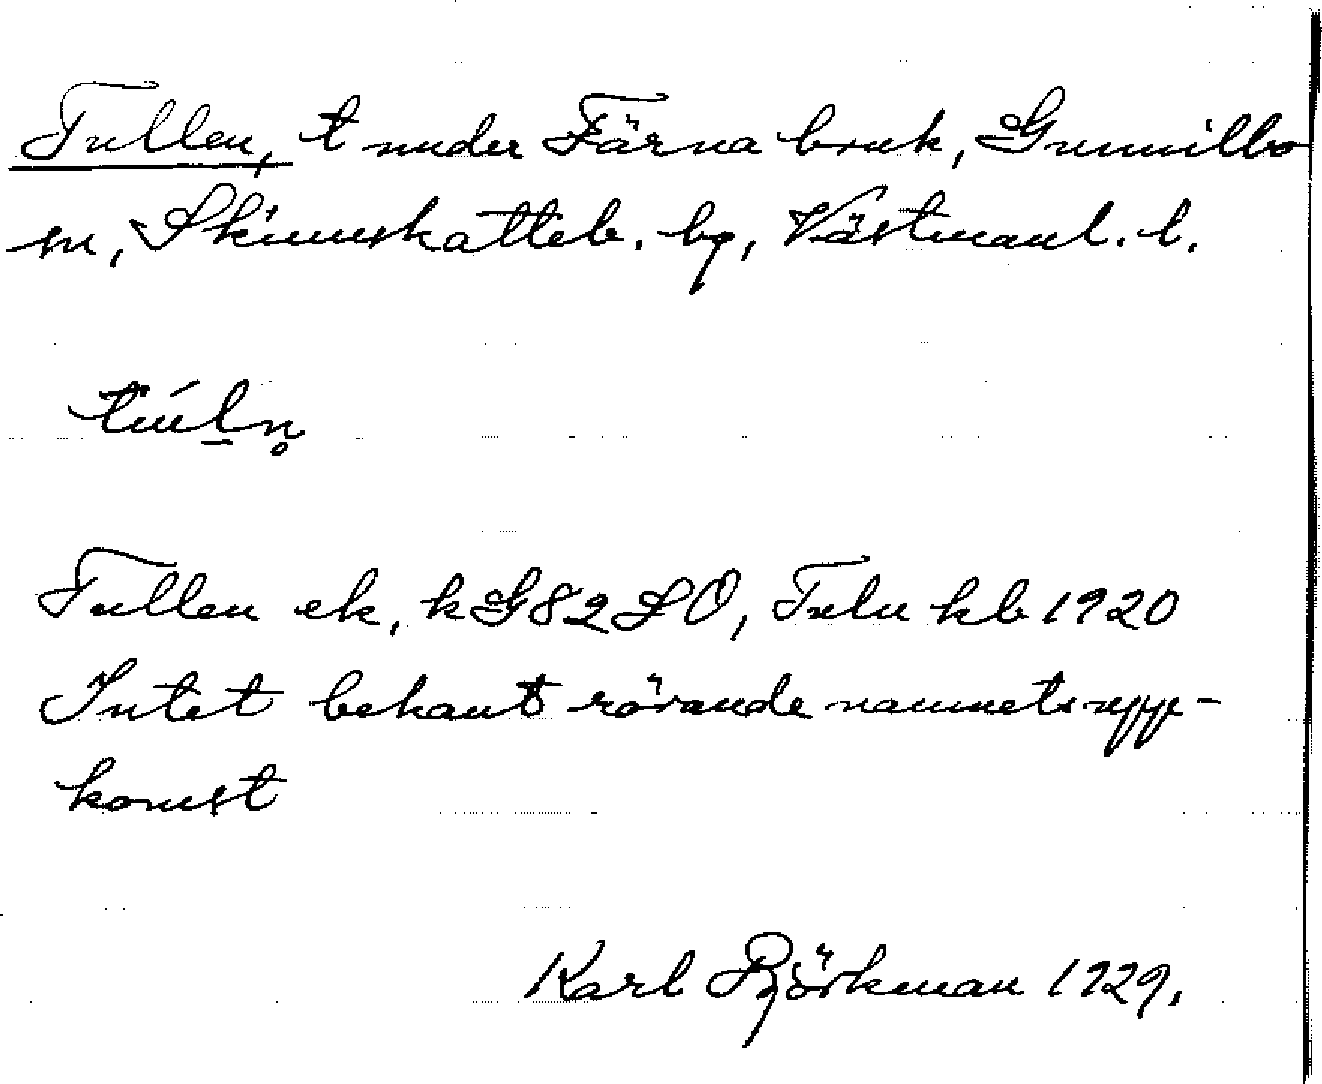 Tullen, t under Färna bruk, Gunnilbo
sn, Skinnskatteb. bg, Västmanl. l.
túl̠n̥
Tullen ek, k G82SO, Tuln kb 1920
Intet bekant rörande namnets upp-
komst
Karl Björkman 1929.